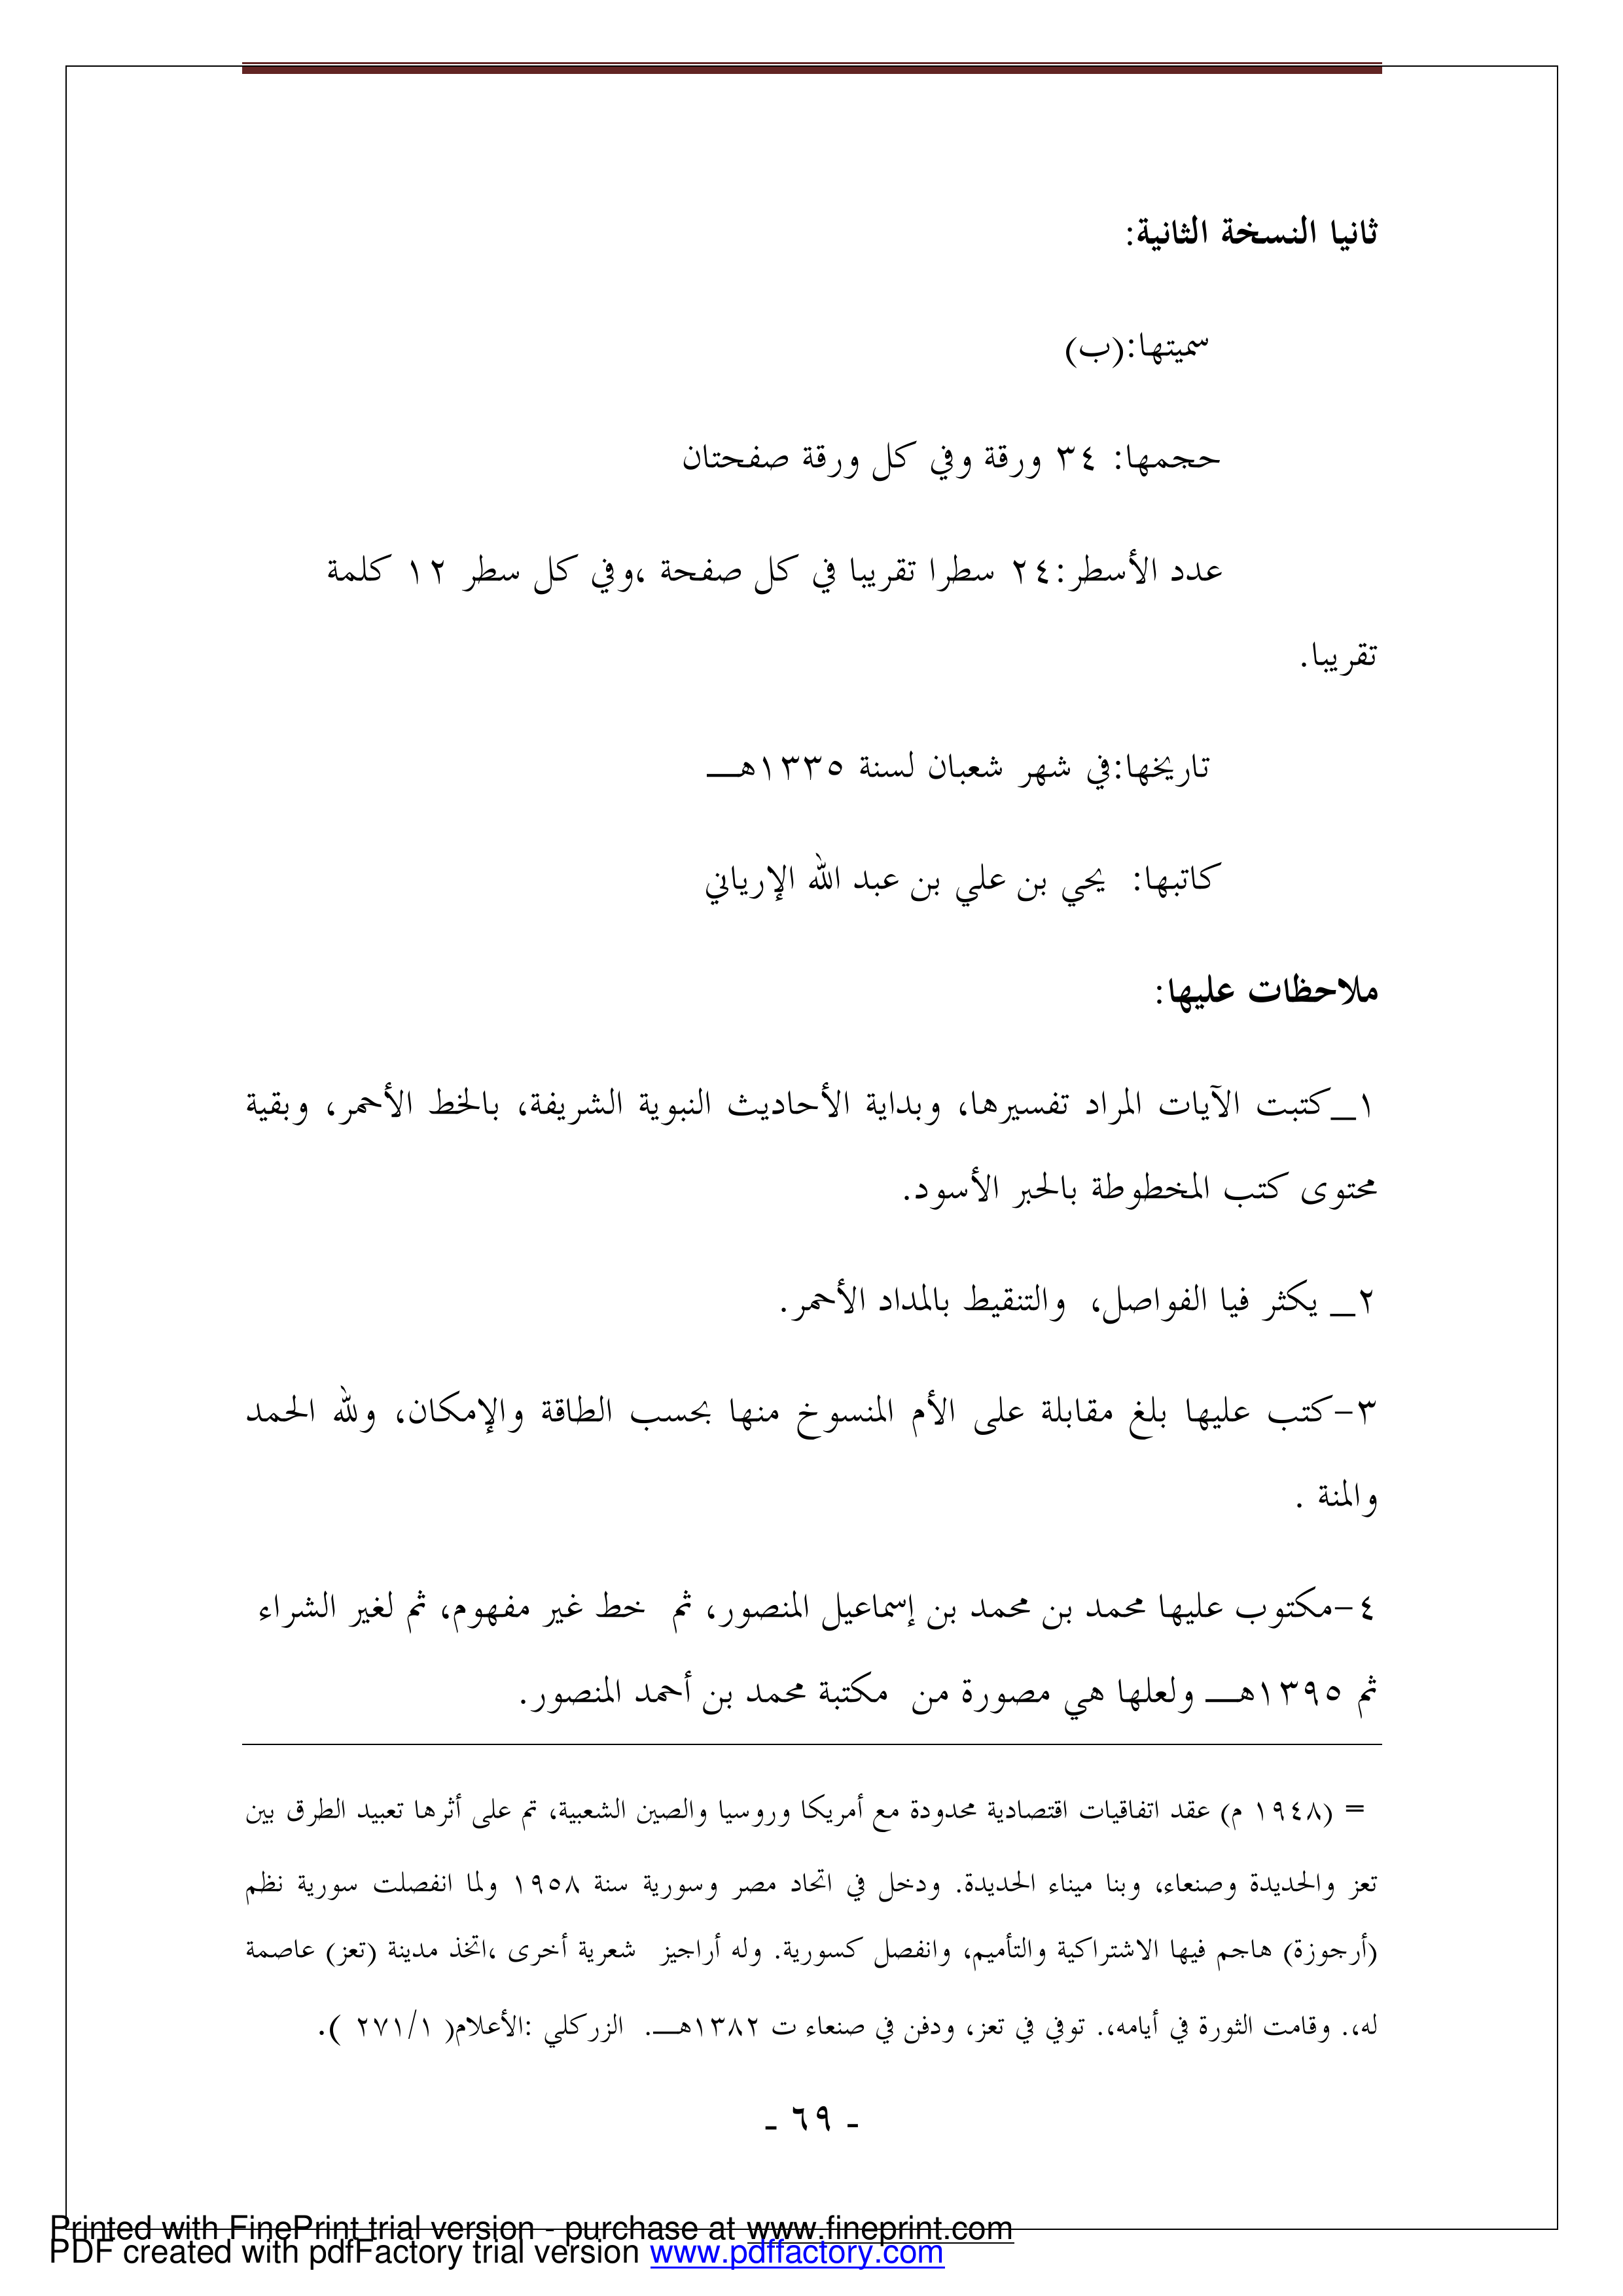 ثانيا النسخة الثانية:
سميتها:(ب)
حجمها: ٣٤ ورقة وفي كل ورقة صفحتان
عدد الأسطر:٢٤ سطرا تقريبا في كل صفحة ،وفي كل سطر ١٢ كلمة
تقريبا.
تاريخها:في شهر شعبان لسنة ١٣٣٥هـــ
كاتبها: يحي بن علي بن عبد الله الإرياني
ملاحظات عليها:
١_كتبت الآيات المراد تفسيرها، وبداية الأحاديث النبوية الشريفة، بالخط الأحمر، وبقية
محتوى كتب المخطوطة بالحبر الأسود.
٢_ يكثر فيا الفواصل، والتنقيط بالمداد الأحمر.
٣-كتب عليها بلغ مقابلة على الأم المنسوخ منها بحسب الطاقة والإمكان، ولله الحمد
والمنة .
٤-مكتوب عليها محمد بن محمد بن إسماعيل المنصور، ثم خط غير مفهوم، ثم لغير الشراء
ثم ١٣٩٥هـــ ولعلها هي مصورة من مكتبة محمد بن أحمد المنصور.
= (١٩٤٨ م) عقد اتفاقيات اقتصادية محدودة مع أمريكا وروسيا والصين الشعبية، تم على أثرها تعبيد الطرق بين
تعز والحديدة وصنعاء، وبنا ميناء الحديدة. ودخل في اتحاد مصر وسورية سنة ١٩٥٨ ولما انفصلت سورية نظم
(أرجوزة) هاجم فيها الاشتراكية والتأميم، وانفصل كسورية. وله أراجيز شعرية أخرى ،اتخذ مدينة (تعز) عاصمة
له،. وقامت الثورة في أيامه،. توفي في تعز، ودفن في صنعاء ت ١٣٨٢هـــ. الزركلي :الأعلام( ٢٧١/١ ).
- ٦٩ -
Printed with FinePrint trial version - purchase at www.fineprint.com
PDF created with pdfFactory trial version www.pdffactory.com